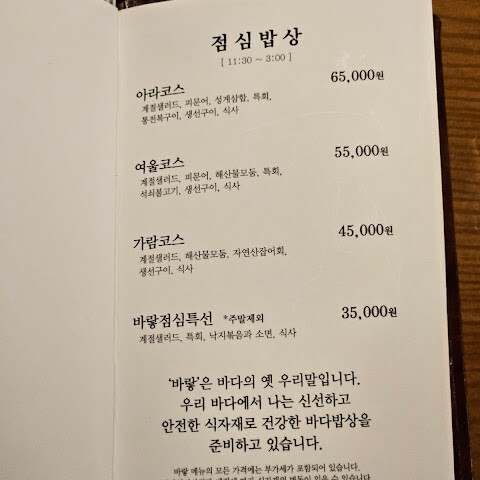 점심밥상
[ 11:30 ~ 3:00 ]
아라코스 65,000원
계절샐러드, 피문어, 성게삼합, 특회,
통전복구이, 생선구이, 식사
여울코스 55,000원
계절샐러드, 피문어, 해산물모둠, 특회,
석쇠불고기, 생선구이, 식사
가람코스 45,000원
계절샐러드, 해산물모둠, 자연산잡어회,
생선구이, 식사
바랗점심특선 *주말제외 35,000원
계절샐러드, 특회, 낙지볶음과 소면, 식사
‘바랗’은 바다의 옛 우리말입니다.
우리 바다에서 나는 신선하고
안전한 식자재로 건강한 바다밥상을
준비하고 있습니다.
바랗 메뉴의 모든 가격에는 부가세가 포함되어 있습니다.